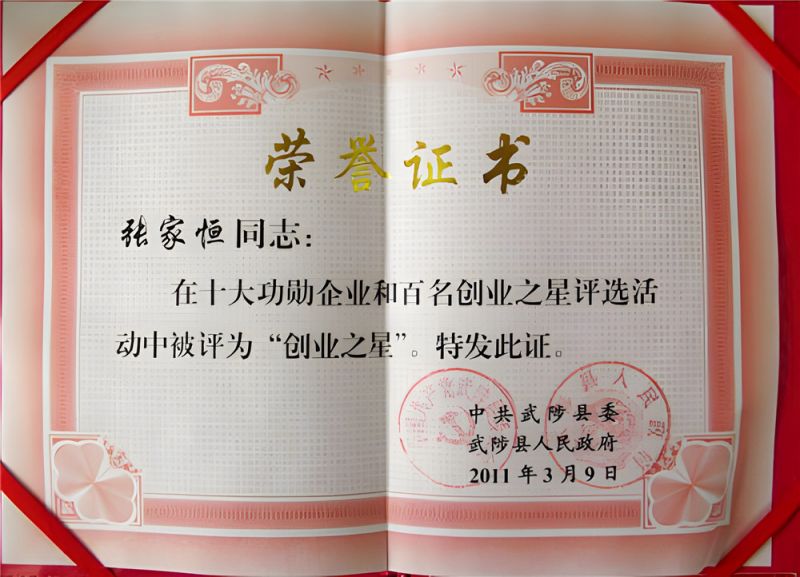 荣誉证书
张家恒同志：
在十大功勋企业和百名创业之星评选活
动中被评为“创业之星”。特发此证。
中共武陟县委
武陟县人民政府
2011年3月9日